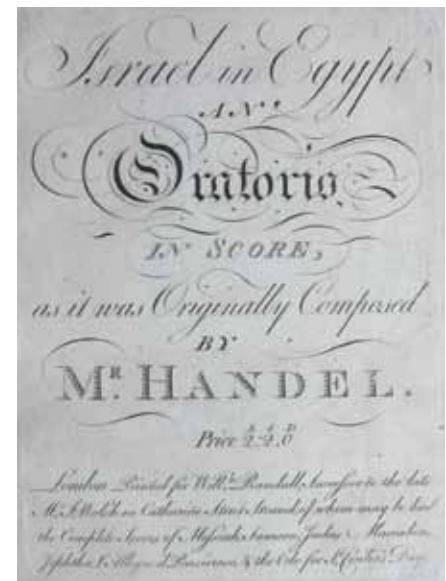 Israel in Egypt
AN
Oratorio
IN SCORE,
as it was Originally Composed
BY
MR. HANDEL.
Price £2. s2. D0
London Printed for Wm. Randall Successor to the late
Mr. J. Walsh in Catharine Street Strand of whom may be had
the Complete Scores of Messiah Samson, Judas Maccabæus
Jephtha L'Allegro il Penseroso & the Ode for St. Cecilia's Day